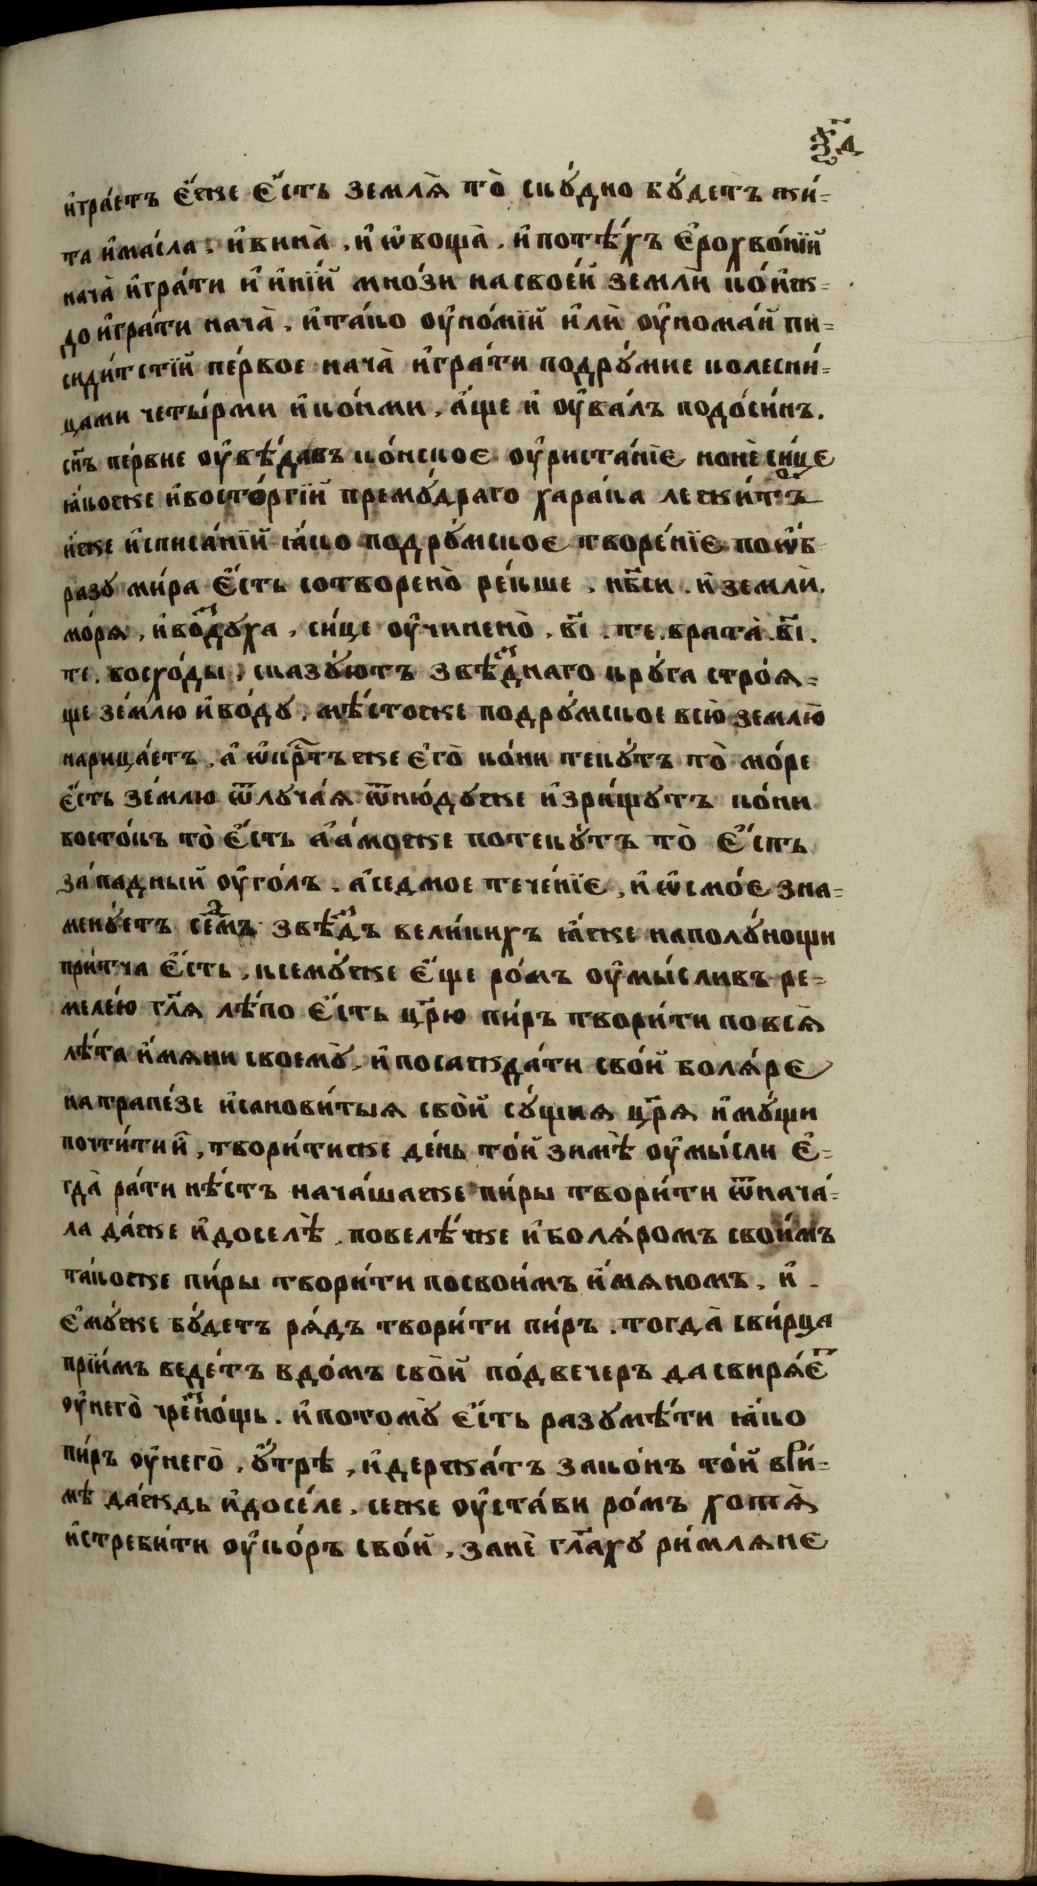 ѯ҃д
и҆гра́етъ є҆́же є҆́сть землѧ̀ то̀ ску́дно бу́детъ жи́-
та и҆ма́сла. и҆вина̀, и҆ ѡ҆воща̀. и҆потѣ́хъ є҆рохво́нїй
нача̀ и҆гра́ти и҆ и҆нїй мно́зи насвое́й землѝ ко́иж-
до и҆гра́ти нача̀. и҆та́ко оу҆но́мїй и҆лѝ оу҆нома́й пи-
сиди́тстїй пе́рвое нача̀ и҆гра́ти подру́мие колесни́-
цами четы́рми и҆ко́нми, а҆́ще и҆ оу҆ва́лъ подо́синъ.
сн҃ъ пе́рвие оу҆вѣ́давъ ко́нское оу҆риста́нїе нонѐси́це
ꙗ҆́коже и҆восто́ргїй прему́драго хара́ка лежи́тъ
и҆́же и҆списа́нїй ꙗ҆́ко подру́мское творе́нїе поѡ҆́б-
разу ми́ра є҆́сть сотворено̀ ре́кше, нб҃си. и҆ землѝ.
мо́рѧ, и҆во́здуха, си́це оу҆чинено̀, в҃і. те. врата̀. в҃і.
те. восхо́ды, сказу́ютъ звѣ́зднаго кру́га стро́ѧ-
ще зе́млю и҆во́ду, мѣ́стоже подру́мское всю̀ землю̀
нарица́етъ, а҆ ѡ҆кр҃тъ же є҆го̀ ко́ни теку́тъ то̀ мо́ре
є҆́сть зе́млю ѿлуча́ѧ ѿню́дуже и҆зри́щутъ ко́ни
восто́къ то̀ є҆́сть а҆а҆́може потеку́тъ то̀ є҆́сть
за́падный оу҆го́лъ. а҆седмое тече́нїе, и҆ ѡ҆смо́е зна-
мену́етъ се́дмъ звѣ́здъ вели́кихъ ꙗ҆́же наполу́нощи
при́тча є҆́сть, ксему́же є҆́ще ро́мъ оу҆мы́сливъ ре-
меле́ю гл҃ѧ лѣ́по є҆́сть цр҃ю пи́ръ твори́ти повсѧ̀
лѣ́та и҆́мѧни своему̀, и҆посажда́ти сво́й болѧ́ре
натрапе́зе и҆санови́тыѧ сво̀й су́щиѧ цр҃ѧ и҆му́щи
почти́тий, твори́тиже де́нь то́й зимѣ̀ оу҆мы́сли є҆-
гда̀ ра́ти нѣ́стъ нача́шаже пи́ры твори́ти ѿнача́-
ла да́же и҆доселѣ̀, повелѣ́же и҆болѧ́ромъ свои́мъ
та́коже пи́ры твори́ти посвои́мъ и҆́мѧномъ, и҆
є҆му́же бу́детъ рѧ́дъ твори́ти пи́ръ. тогда̀ сви́рца
прїи́мъ веде́тъ вдо́мъ сво̀й по́двечеръ дасвирѧ́ет
оу҆него̀ чрезно́щь. и҆потому̀ є҆́сть разумѣ́ти ꙗ҆́ко
пи́ръ оу҆него̀, у҆́трѣ, и҆держа́тъ зако́нъ то́й ври́-
мѣ да́ждь и҆досе́ле. сеже оу҆ста́ви ро́мъ хотѧ̀
и҆стреби́ти оу҆ко́ръ сво́й, занѐ гл҃аху ри́млѧне